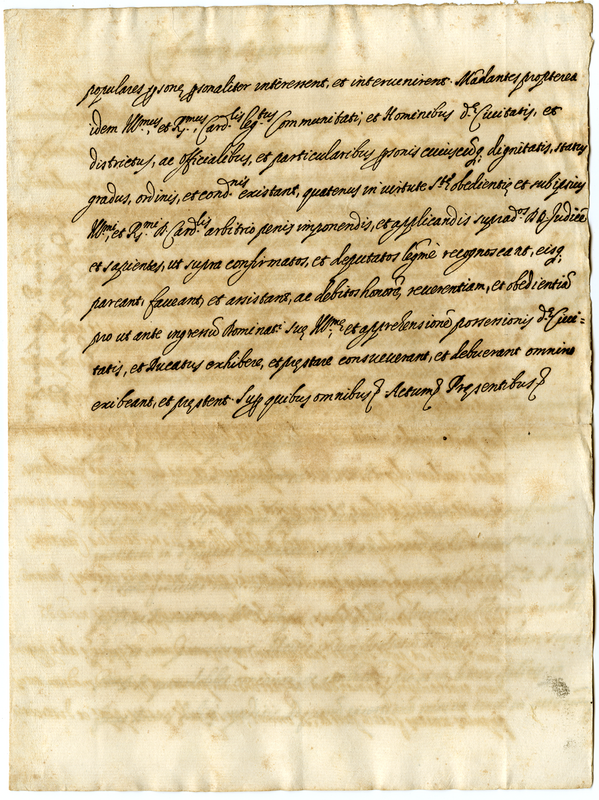 populares psonę psonaliter interessent, et intervenirent. Mādantes propterea
idem Ill.mus, et R.mus Card.lis leg.tus Communitati, et Hominibus d.ę Civitatis, et
districtus, ac officialibus, et particularibus psonis cuiuscūq; dignitatis, status
gradus, ordinis, et cond.nis existant, quatenus in virtute S.tę obedientię et sub ipsius
Ill.mi, et R.mi D. Card.lis arbitrio penis imponendis, et applicandis suprad.os DD. Judicē
et sapientes, ut supra confirmatos, et deputatos recognoscant, eisq;
pareant, faveant, et assistant, ac debitos honorē, reverentiam, et obedientiā
pro ut ante ingressū Dominat. suę Ill.mę, et apprehensionē possessionis d.ę Civi=
tatis, et Ducatus exhibere, et pręstare consueverant, et debuerant omnino
exibeant, et pręstent. Sup quibus omnibus Actum Pręsentibus